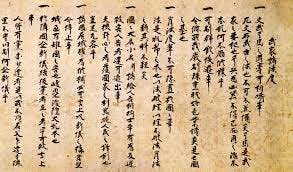 武家諸法度
一 文武弓馬之道専可相嗜事
左文右武古之法也不可不兼備矣弓馬是武
家之要枢也号兵為凶器不得已而用之治不
忘乱何不励修錬乎
一 可制群飲佚遊事
令条所載厳制殊重耽好色業博奕是亡国
之基也
一 背法度輩不可隠置於国々事
法是礼節之本也以法破理以理不破法背法
之類其科不軽矣
一 国々大名小名并諸給人各相抱士卒有為反逆
殺害人告者速可追出事
夫挟野心之者為覆国家之利器絶人民之鋒剣也
豈足允容乎
一 諸国居城雖為修補必可言上況新儀之構営
堅令停止事
城過百雉国之害也峻塁浚湟大乱之本也
一 於隣国企新儀結徒党者有之者早可致言上事
人皆有党亦少達者是以或不順君父乍違于隣
里不守旧制何企新儀乎